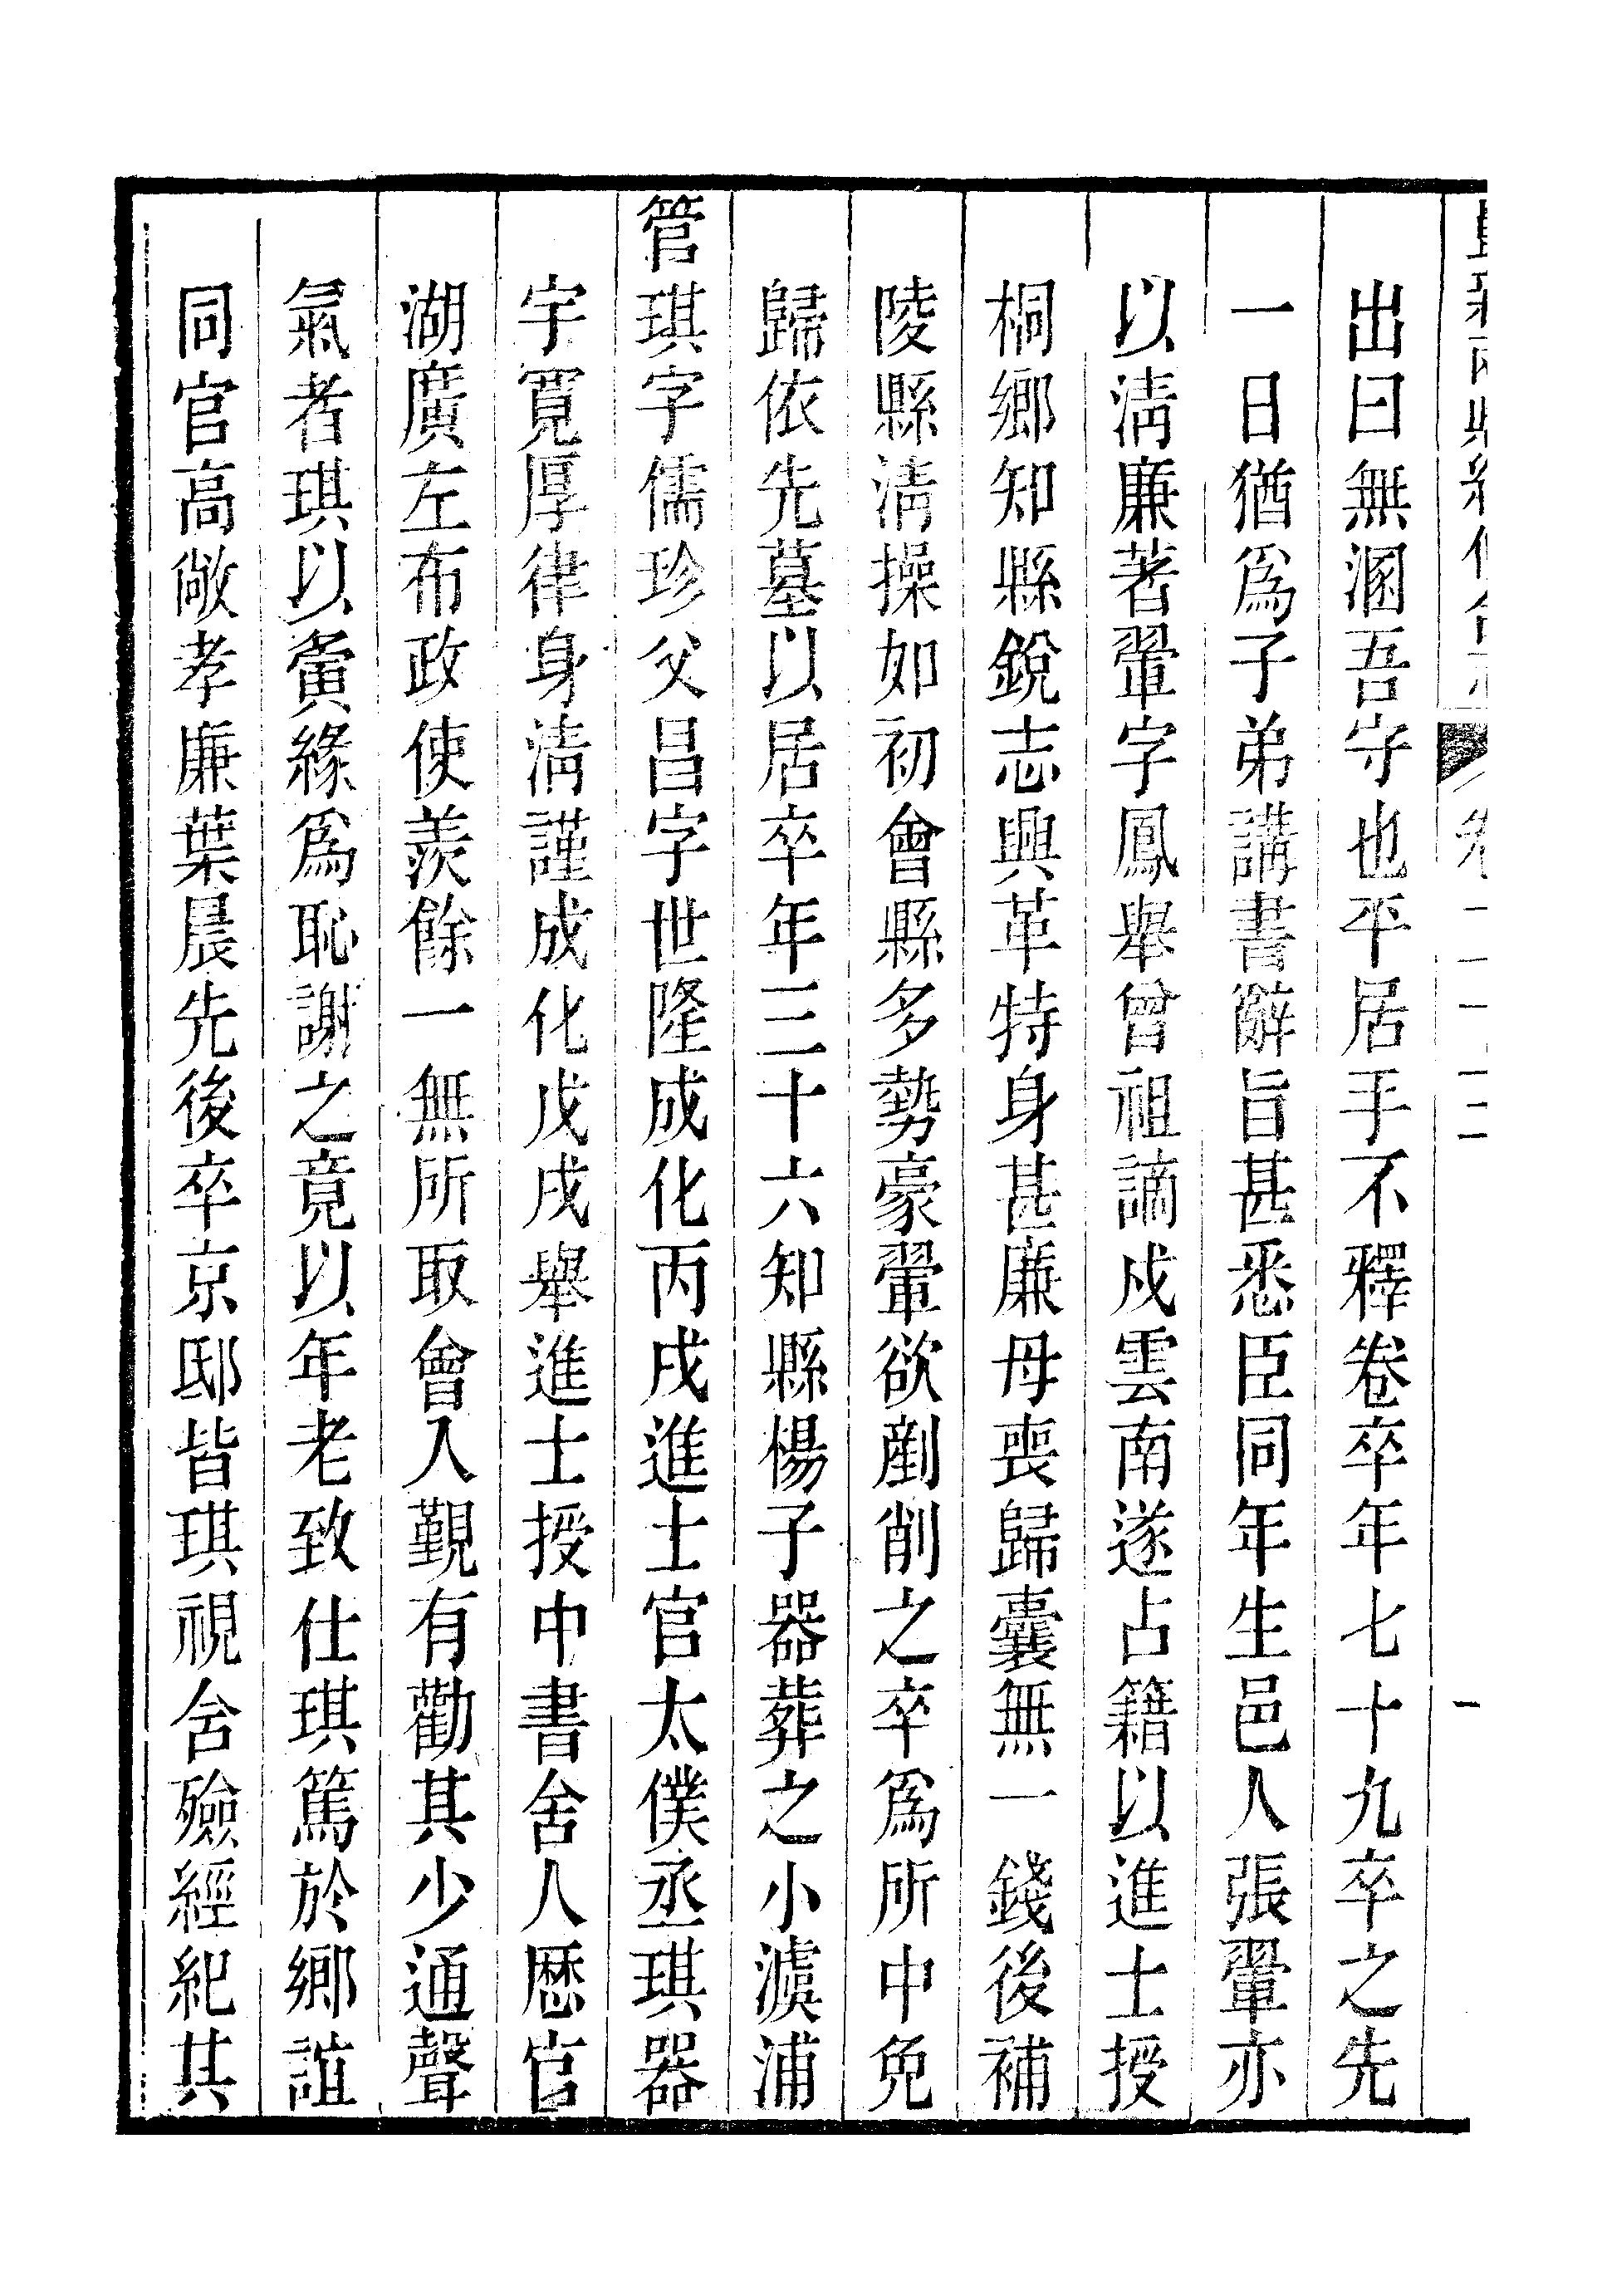 出曰無溷吾守也平居手不釋卷卒年七十九卒之先
一日猶爲子弟講書辭旨甚悉臣同年生邑人張翬亦
以淸廉著翬字鳳舉曾祖謫戍雲南遂占籍以進士授
桐鄉知縣銳志興革特身甚廉母喪歸囊無一錢後補
陵縣淸操如初會縣多勢豪翬欲剷削之卒爲所中免
歸依先墓以居卒年三十六知縣楊子器葬之小濱浦
管琪字儒珍父昌字世隆成化丙戌進士官太僕丞琪器
宇寬厚律身淸謹成化戊戌舉進士授中書舍人歷官
湖廣左布政使羨餘一無所取會入覲有勸其少通聲
氣者琪以夤緣爲恥謝之竟以年老致仕琪篤於鄉誼
同官高敞孝廉葉晨先後卒京邸皆琪視含殮經紀其